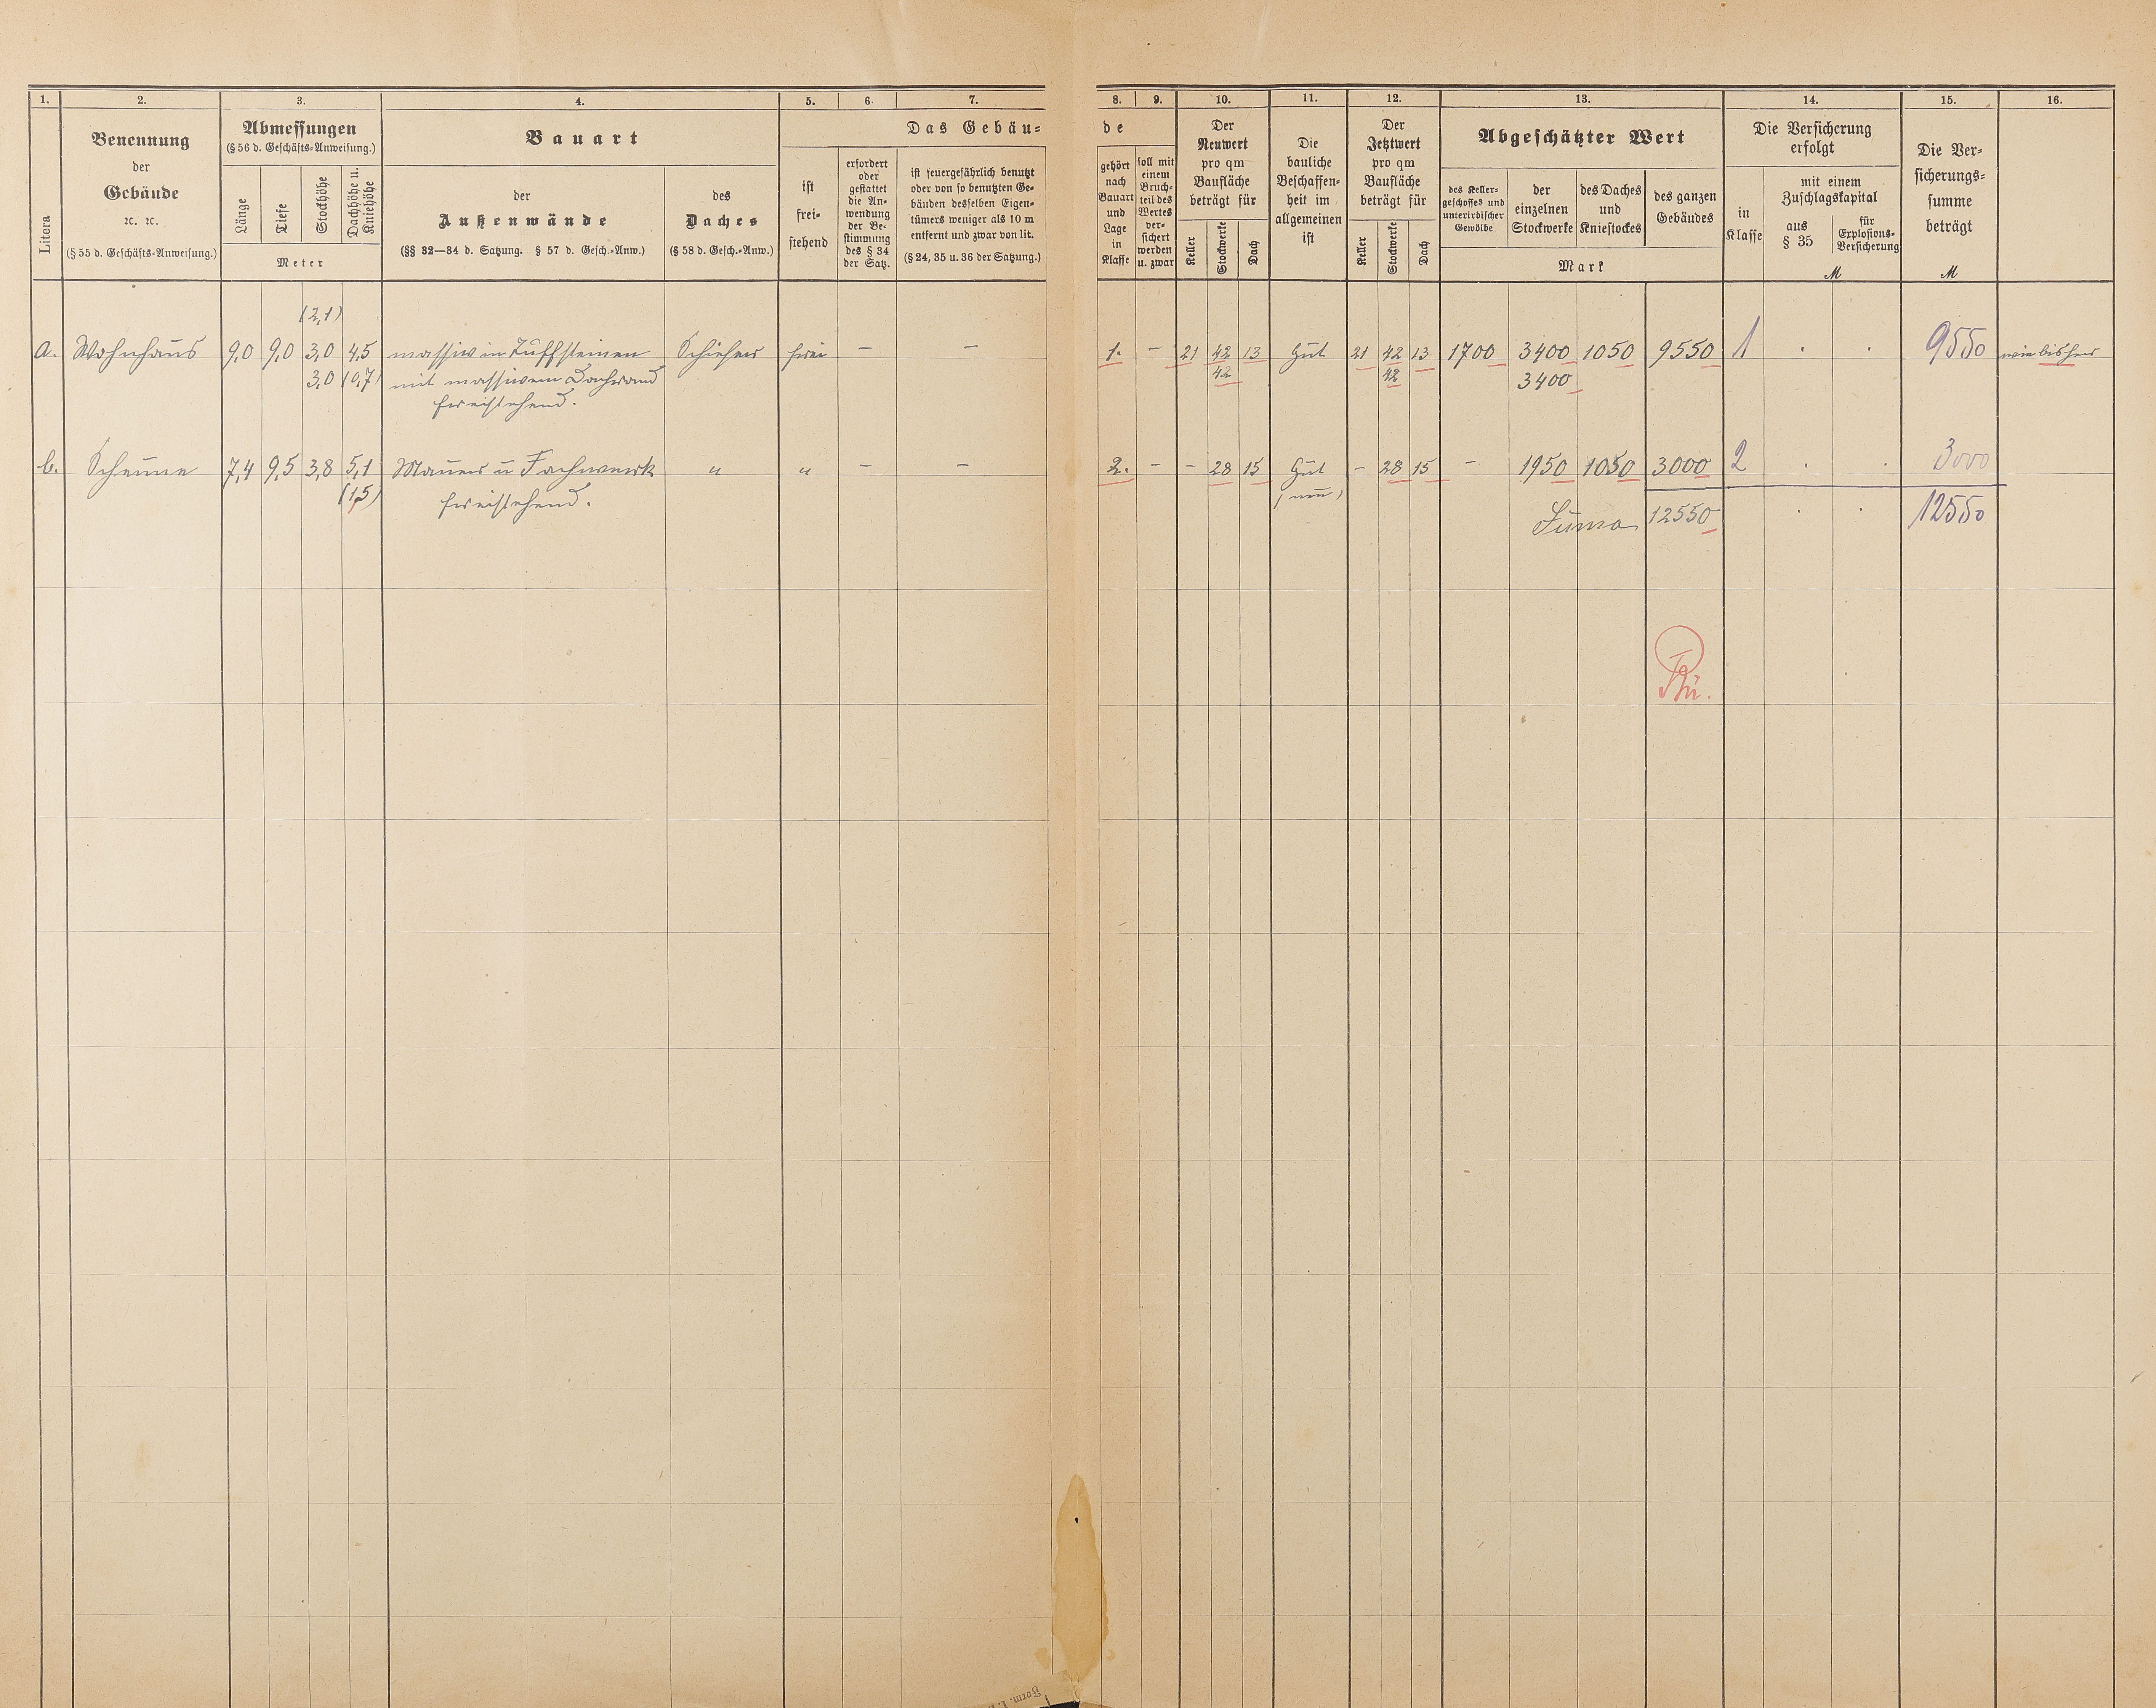 1. 2. 3. 4. 5. 6. 7. 8. 9. 10. 11. 12. 13. 14. 15. 16.
Litera
Benennung
der
Gebäude
ꝛc. ꝛc.
(§ 55 d. Geschäfts-Anweisung.)
Abmessungen
(§ 56 d. Geschäfts-Anweisung.)
Länge
Tiefe
Stockhöhe
Dachhöhe u.
Kniehöhe
Meter
Bauart
der
Außenwände
(§§ 32—34 d. Satzung. § 57 d. Gesch.-Anw.)
des
Daches
(§ 58 d. Gesch.-Anw.)
Das Gebäu-
ist
frei-
stehend
erfordert
oder
gestattet
die An-
wendung
der Be-
stimmung
des § 34
der Satz.
ist feuergefährlich benutzt
oder von so benutzten Ge-
bäuden desselben Eigen-
tümers weniger als 10 m
entfernt und zwar von lit.
(§ 24, 35 u. 36 der Satzung.)
de
gehört
nach
Bauart
und
Lage
in
Klasse
soll mit
einem
Bruch-
teil des
Wertes
ver-
sichert
werden
u. zwar
Der
Neuwert
pro qm
Baufläche
beträgt für
Keller
Stockwerke
Dach
Die
bauliche
Beschaffen-
heit im
allgemeinen
ist
Der
Jetztwert
pro qm
Baufläche
beträgt für
Keller
Stockwerke
Dach
Abgeschätzter Wert
des Keller-
geschosses und
unterirdischer
Gewölbe
der
einzelnen
Stockwerke
des Daches
und
Kniestockes
des ganzen
Gebäudes
Mark
Die Versicherung
erfolgt
in
Klasse
mit einem
Zuschlagskapital
aus
§ 35
für
Explosions-
Versicherung
M
Die Ver-
sicherungs-
summe
beträgt
M
(2,1)
a. Wohnhaus 9,0 9,0 3,0 4,5 massiv in Tuffsteinen Schiefer frei — — 1. — 21 42 13 Gut 21 42 13 1700 3400 1050 9550 1 . . 9550 wie bisher
3,0 (0,7) mit massivem Dachrand 42 42 3400
freistehend.
b. Scheune 7,4 9,5 3,8 5,1 Mauer u Fachwerk " " — — 2. — — 28 15 Gut — 28 15 — 1950 1050 3000 2 . . 3000
(1,5) freistehend. (neu)
Suma 12550 . . 12550
Form. I.